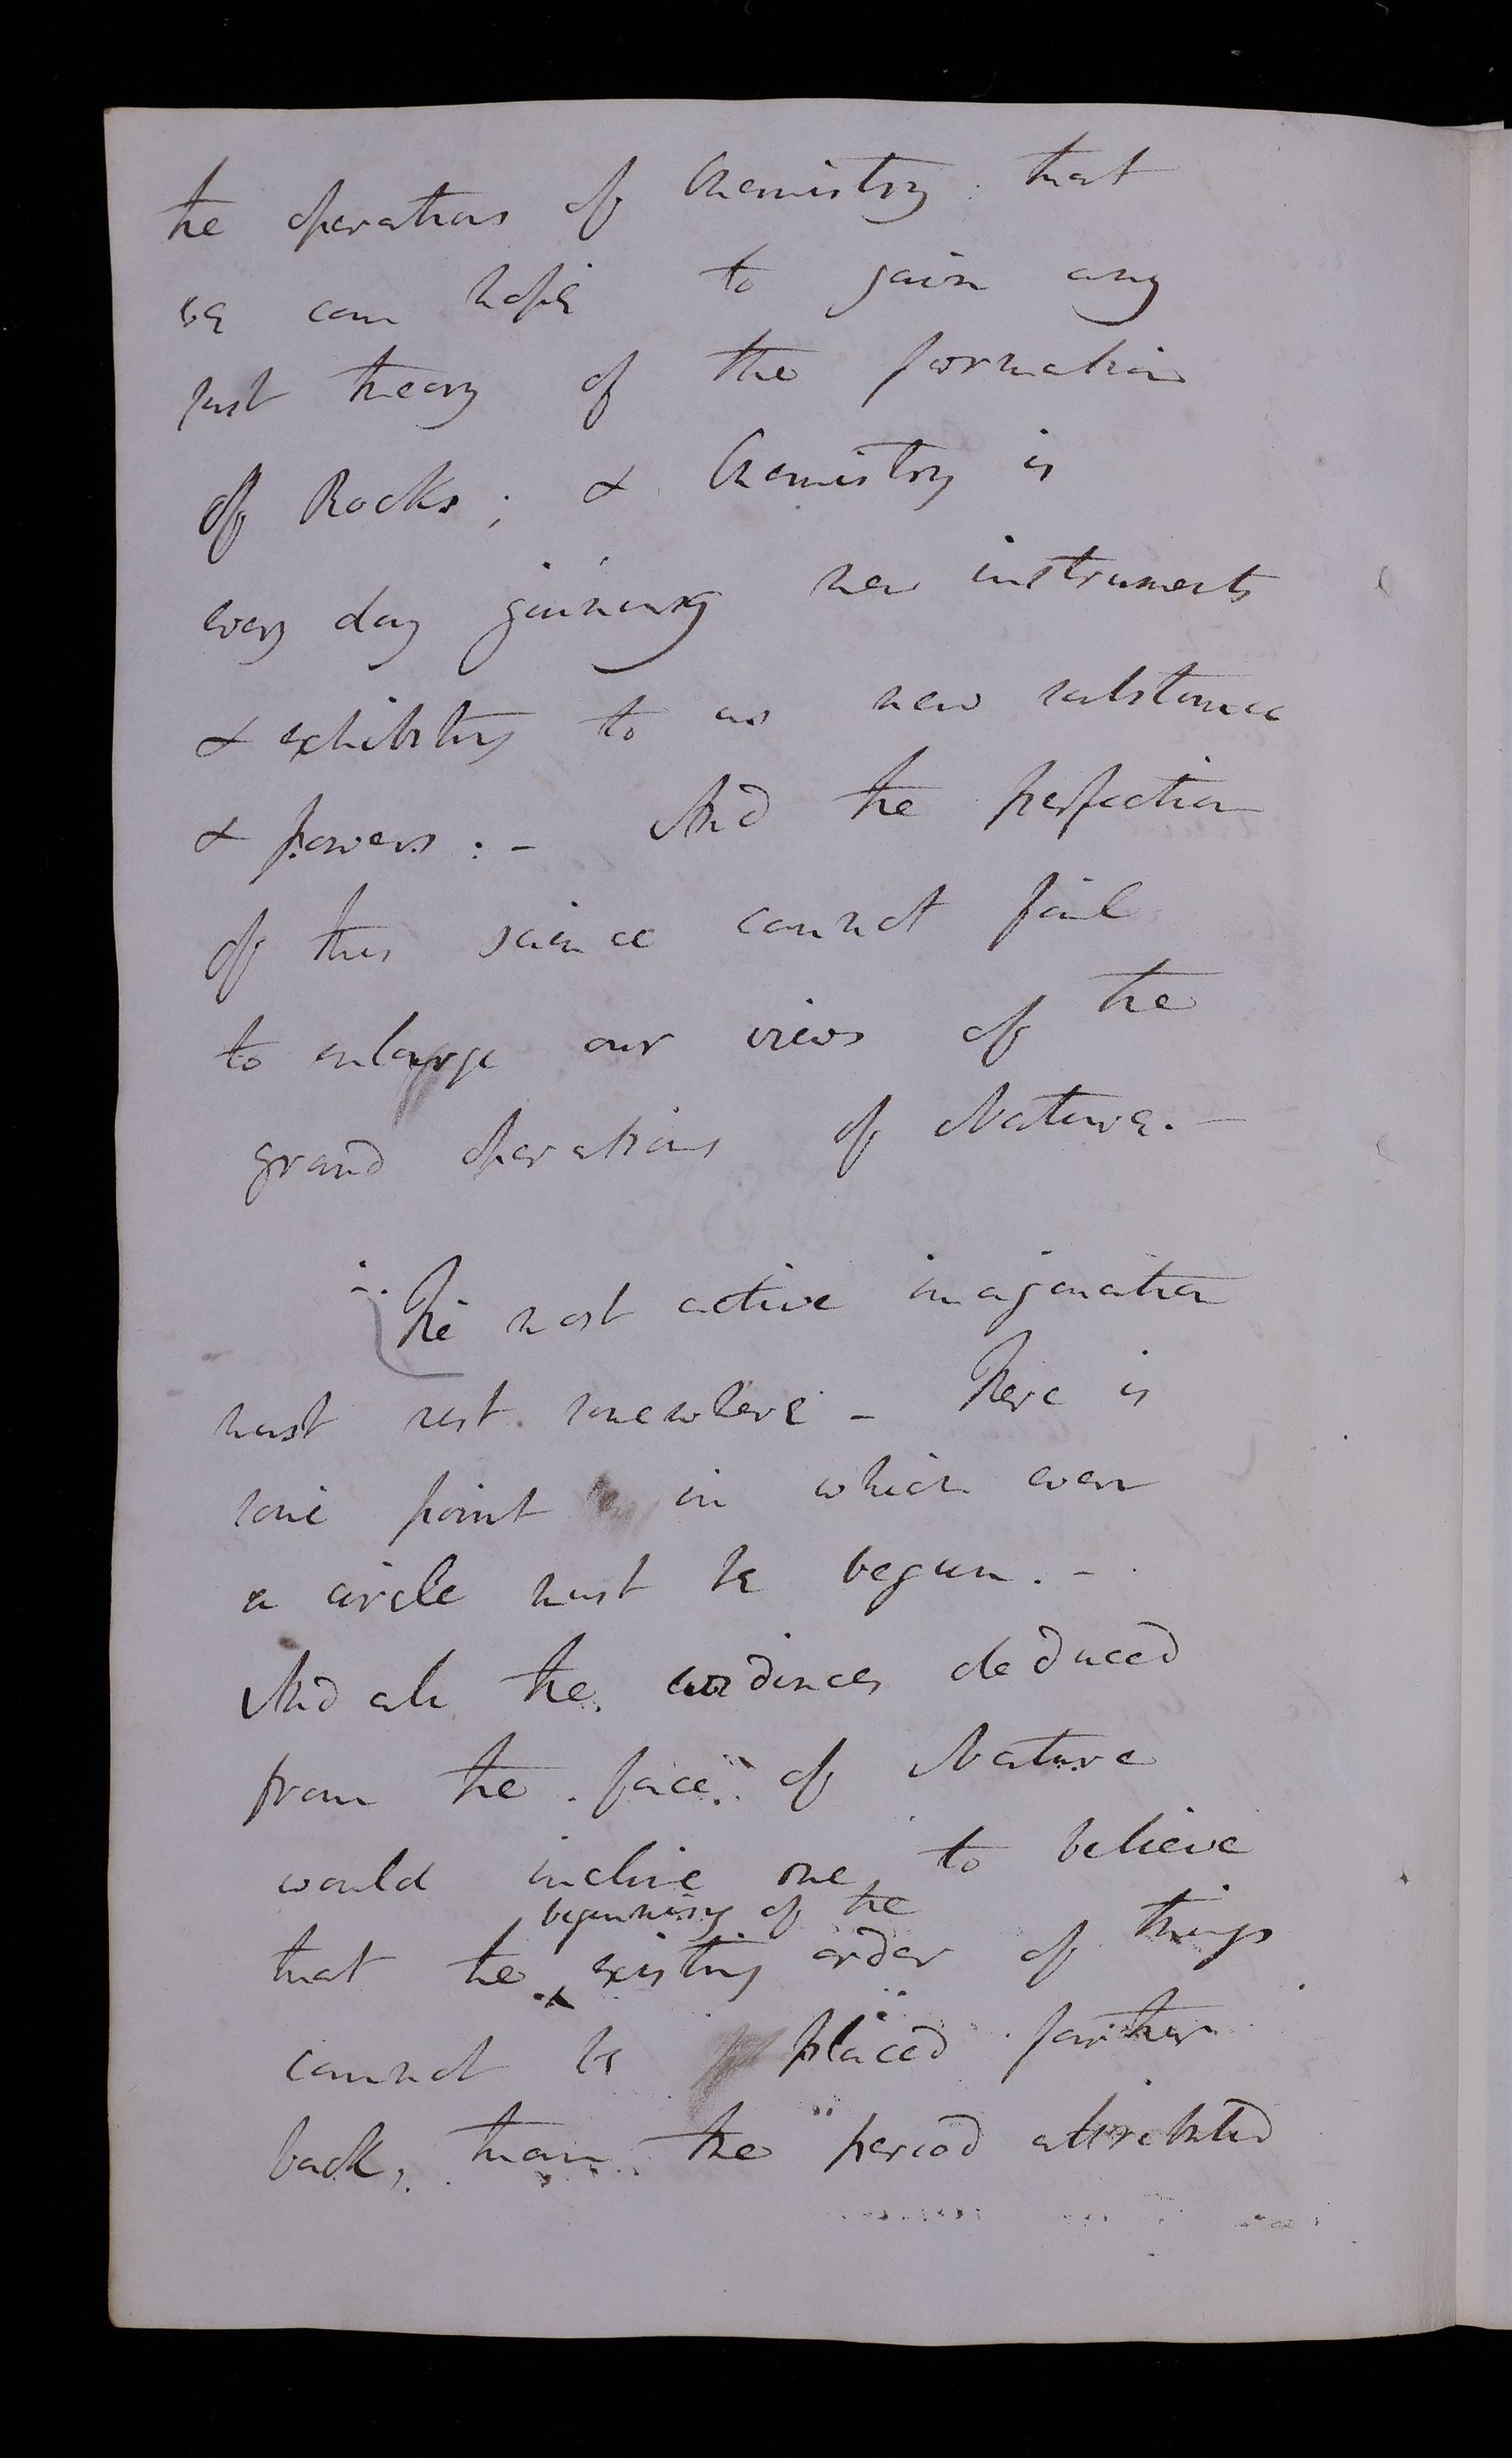 the operations of Chemistry that
we can hope to gain any
just theory of the formation
of Rocks; & Chemistry is
every day gaining new instruments
& exhibiting to us new substances
& powers: - And the perfection
of this science cannot fail
to enlarge our views of the
grand operations of Nature. -
The most active imagination
must rest somewhere - There is
some point in which even
a circle must be begun. -
And all the evidences deduced
from the face of Nature
would incline one to believe
beginning of the
that the existing order of things
cannot be placed farther
back, than the period attributed